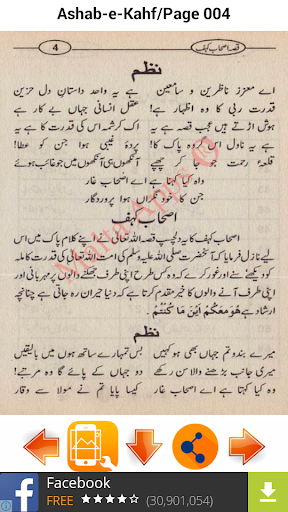 Ashab-e-Kahf/Page 004
4
قصہ اصحاب کہف
نظم
اے معزز ناظرین و سامعین
ہے یہ واحد داستانِ دل حزیں
قدرت ربی کا وہ اظہار ہے!
عقل انسانی جہاں بے کار ہے
ہوش اڑتے ہیں عجب قصہ ہے یہ
اک کرشمہ اس کی قدرت کا ہے یہ
ہے یہ نازل اس گروہ پاک کا!
قربِ غیبی ہوا جن کو عطا!
قلعۂ رحمت جو جا کر چھپے
آنکھوں ہی آنکھوں میں جو غائب ہوئے
واہ کیا کہنا ہے اے اصحاب غار
جن کا خود نگراں ہوا پروردگار
اصحاب کہف
اصحاب کہف کا یہ دلچسپ قصہ اللہ تعالیٰ نے اپنے کلام پاک میں اس
لیے نازل فرمایا کہ حضرت صلی اللہ علیہ وسلم کی امت اللہ تعالیٰ کی قدرت کاملہ
کو دیکھے سنے اور غور کرے کہ وہ کس طرح اپنی طرف جھکنے والوں پر مہربانی اور
اپنی طرف آنے والوں کا خیر مقدم کرتا ہے کہ دنیا حیران رہ جاتی ہے چنانچہ
ارشاد ہے هُوَ مَعَكُمْ اَيْنَ مَا كُنْتُمْ
نظم
میرے بندو تم جہاں بھی ہو کہیں
بس تمہارے ساتھ ہوں میں بالیقیں
میری جانب بڑھنے والا سن رکھے
دو جہاں کے پائے گا وہ مرتبے!
واہ کیا کہنا ہے اے اصحاب غار
کیسا پایا تم نے مولا سے وقار
Multa Apps ©
Facebook
FREE ★★★★☆ (30,901,054)